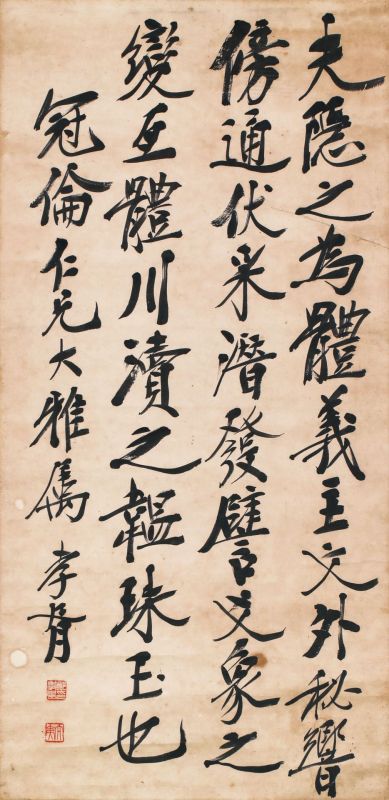 夫隱之為體義主文外秘響
傍通伏采潛發譬爻象之
變互體川瀆之韞珠玉也
冠倫仁兄大雅屬 孝胥